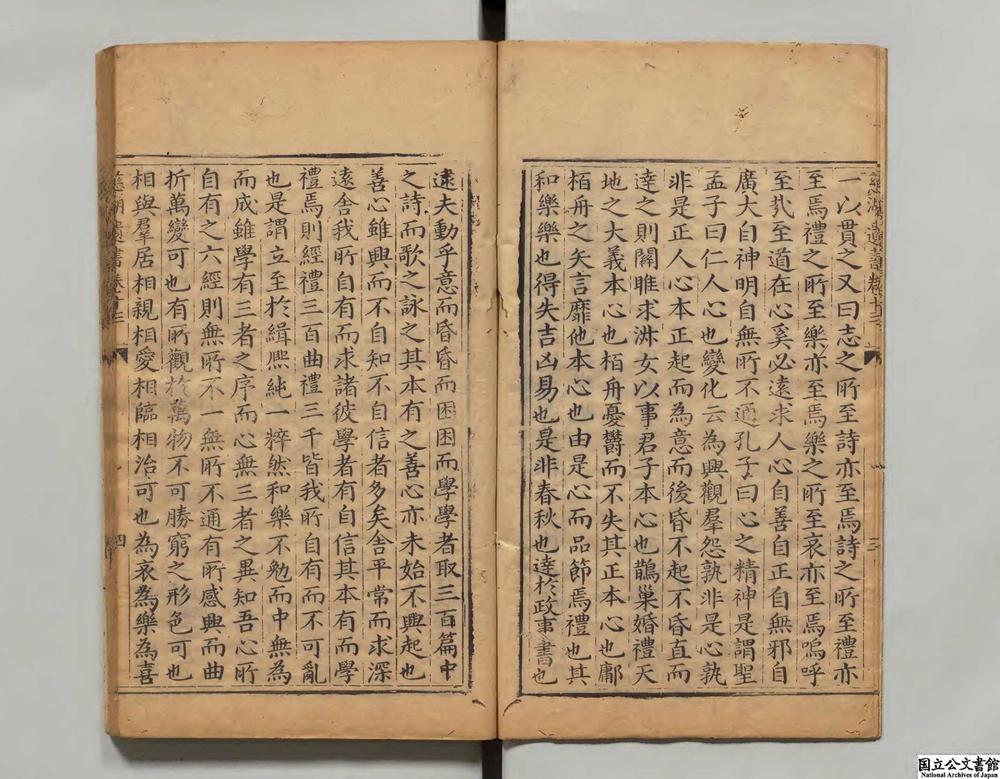 一以貫之又曰志之所至詩亦至焉詩之所至禮亦
至焉禮之所至樂亦至焉樂之所至哀亦至焉嗚呼
至哉至道在心奚必遠求人心自善自正自無邪自
廣大自神明自無所不通孔子曰心之精神是謂聖
孟子曰仁人心也變化云為興觀羣怨孰非是心孰
非是正人心本正起而為意而後昏不起不昏直而
達之則關雎求淑女以事君子本心也鵲巢婚禮天
地之大義本心也栢舟憂鬱而不失其正本心也鄘
栢舟之矢言靡他本心也由是心而品節焉禮也其
和樂樂也得失吉凶易也是非春秋也達於政事書也
三
逺夫動乎意而昏昏而困困而學學者取三百篇中
之詩而歌之詠之其本有之善心亦未始不興起也
善心雖興而不自知不自信者多矣舍平常而求深
遠舍我所自有而求諸彼學者有自信其本有而學
禮焉則經禮三百曲禮三千皆我所自有而不可亂
也是謂立至於緝熙純一粹然和樂不勉而中無為
而成雖學有三者之序而心無三者之異知吾心所
自有之六經則無所不一無所不通有所感興而曲
折萬變可也有所觀於萬物不可勝窮之形色可也
相與羣居相親相愛相臨相治可也為哀為樂為喜
慈湖遺書卷十三
四
国立公文書館
National Archives of Japan